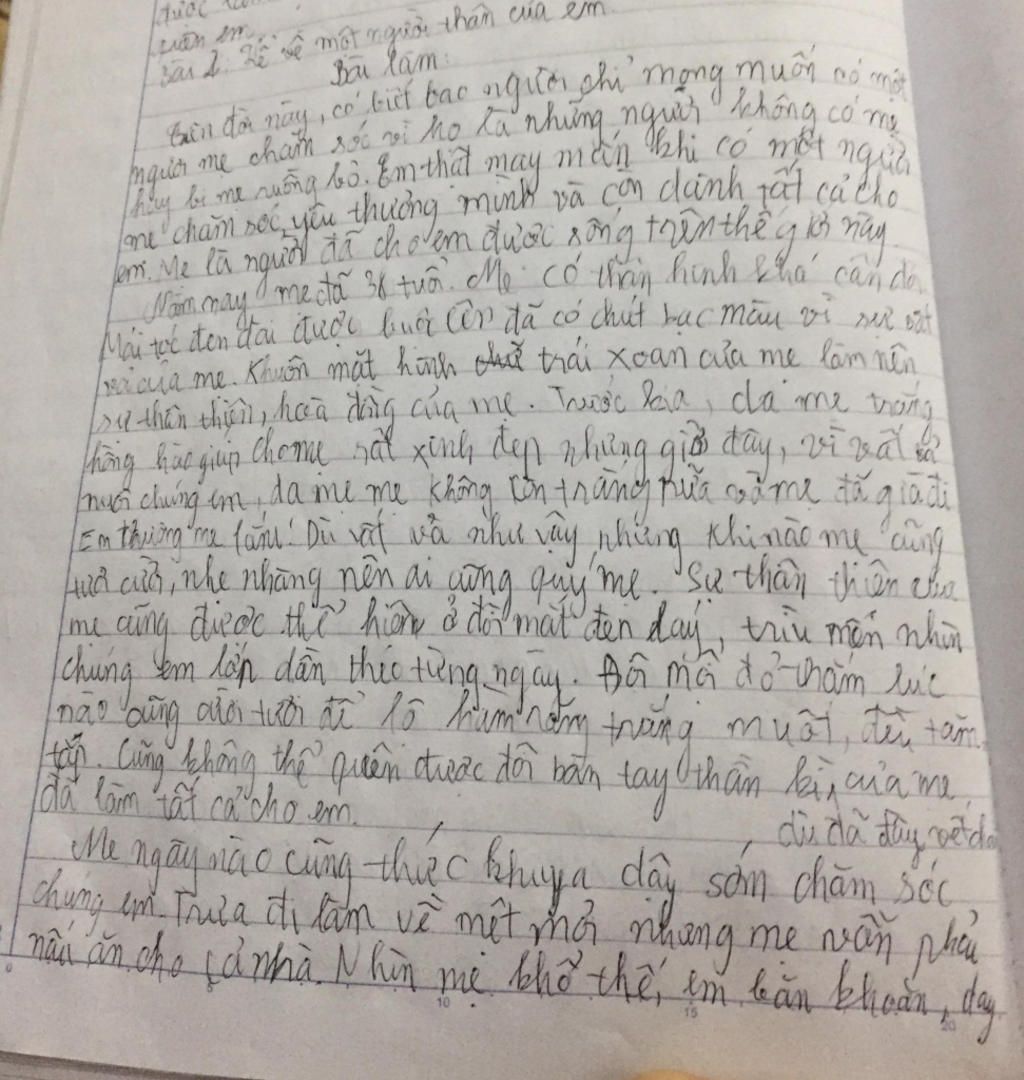 được
em
Bài 2: Kể về một người thân của em.
Bài làm:
Trên đời này, có biết bao người chỉ mong muốn có một
người mẹ chăm sóc vì họ là những người không có mẹ
hay bị mẹ ruồng bỏ. Em thật may mắn khi có một người
mẹ chăm sóc, yêu thương mình và còn dành tất cả cho
em. Mẹ là người đã cho em được sống trên thế giới này.
Năm nay mẹ đã 36 tuổi. Mẹ có thân hình khá cân đối.
Mái tóc đen dài được buộc lên đã có chút bạc màu vì sự vất
vả của mẹ. Khuôn mặt hình trái xoan của mẹ làm nên
sự thân thiện, hoà đồng của mẹ. Trước kia, da mẹ trắng
hồng hào giúp cho mẹ rất xinh đẹp nhưng giờ đây, vì vất vả
nuôi chúng em, da mẹ mẹ không còn trắng nữa và mẹ đã già đi.
Em thương mẹ lắm! Dù vất vả như vậy nhưng khi nào mẹ cũng
tươi cười, nhẹ nhàng nên ai cũng quý mẹ. Sự thân thiện của
mẹ cũng được thể hiện ở đôi mắt đen láy, trìu mến nhìn
chúng em lớn dần theo từng ngày. Đôi môi đỏ thắm lúc
nào cũng cười tươi để lộ hàm răng trắng muốt, đều tăm
tắp. Cũng không thể quên được đôi bàn tay thần kì, của mẹ,
đã làm tất cả cho em.
dù đã đầy vết
Mẹ ngày nào cũng thức khuya dậy sớm chăm sóc
chúng em. Trưa đi làm về mệt mỏi nhưng mẹ vẫn phải
nấu ăn cho cả nhà. Nhìn mẹ khổ thế, em băn khoăn, day
10
15
20